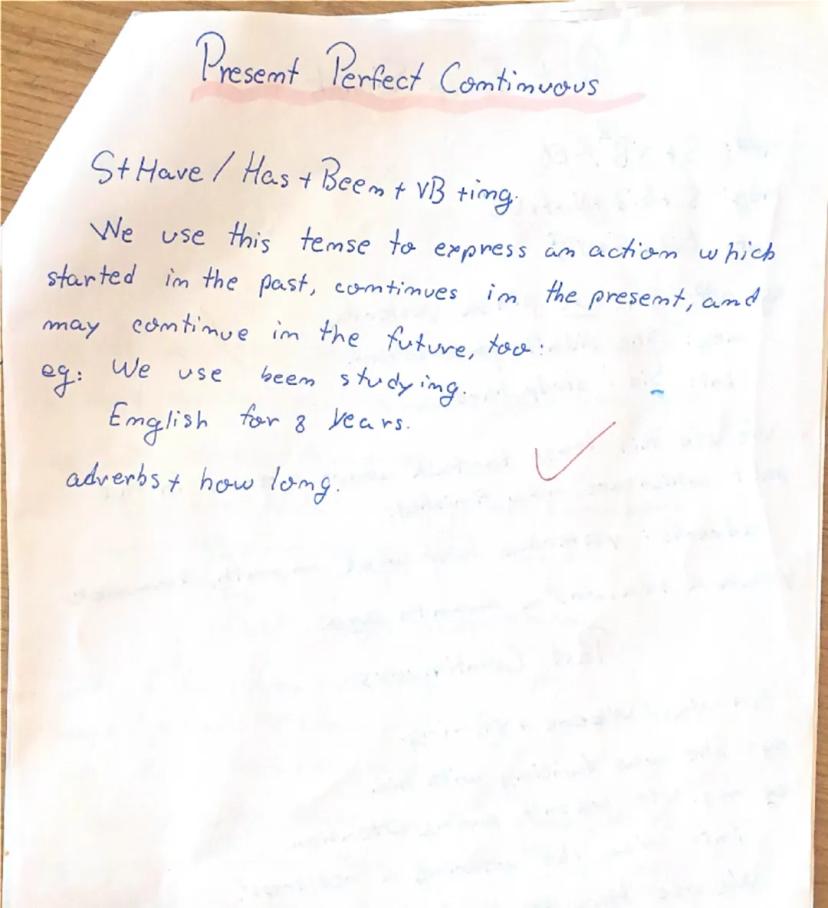 Present Perfect Continuous
S+Have / Has + Been + VB +ing.
We use this tense to express an action which
started in the past, continues in the present, and
may continue in the future, too.
eg: We use been studying.
English for 8 years.
adverbs + how long.